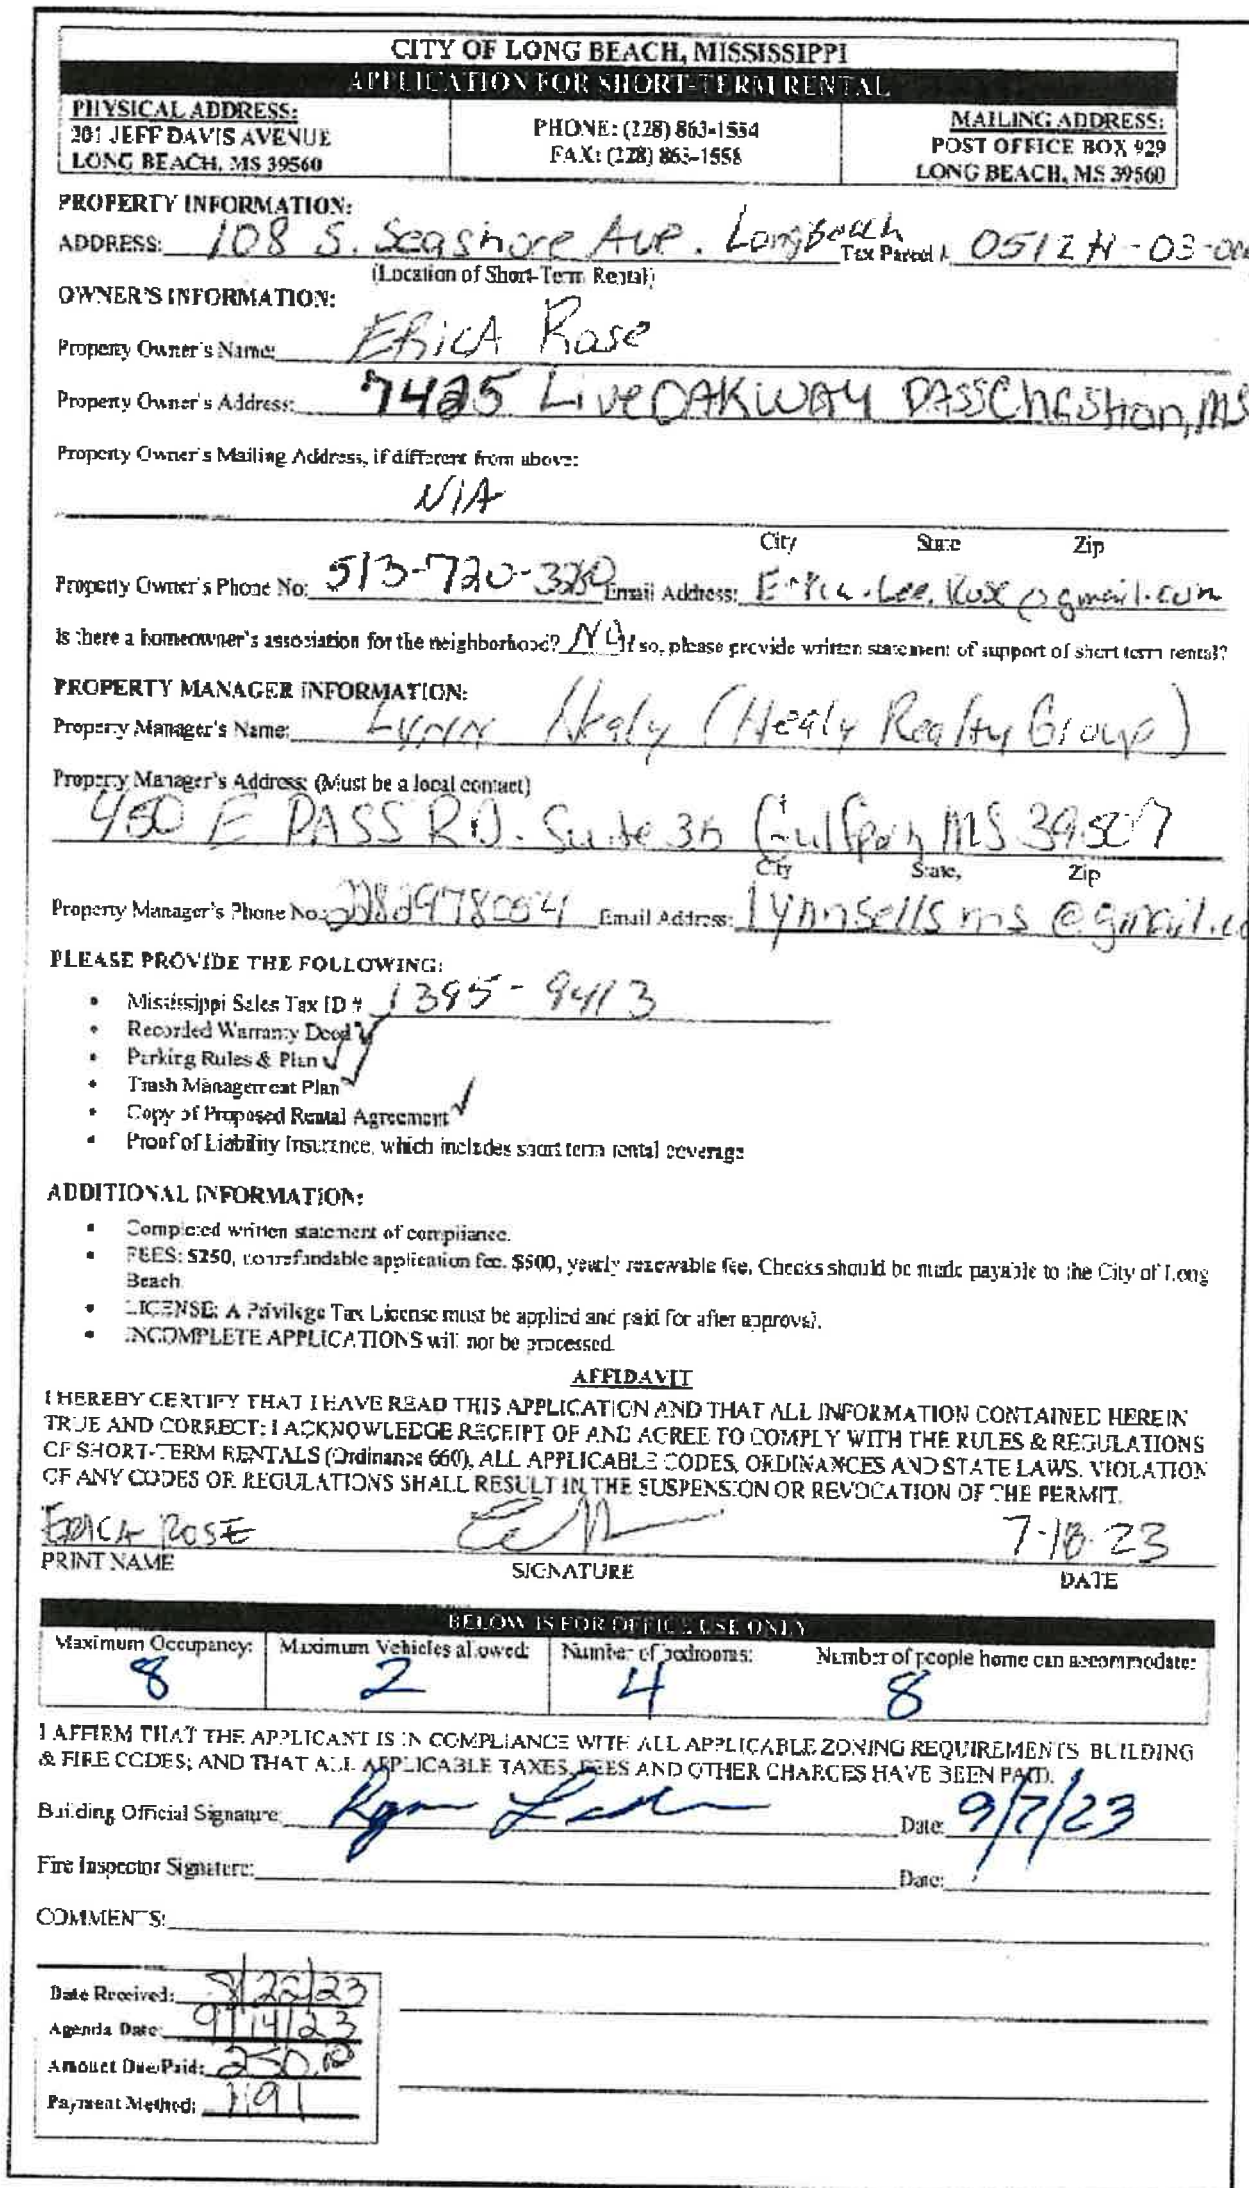 CITY OF LONG BEACH, MISSISSIPPI
APPLICATION FOR SHORT-TERM RENTAL
PHYSICAL ADDRESS:
201 JEFF DAVIS AVENUE
LONG BEACH, MS 39560
PHONE: (228) 863-1554
FAX: (228) 863-1558
MAILING ADDRESS:
POST OFFICE BOX 929
LONG BEACH, MS 39560
PROPERTY INFORMATION:
ADDRESS: 108 S. Seashore Ave. Long Beach Tax Parcel # 0512H-03-00
(Location of Short-Term Rental)
OWNER'S INFORMATION:
Property Owner's Name: ERICA Rose
Property Owner's Address: 7425 Live OAK WAY PASS Christian, MS
Property Owner's Mailing Address, if different from above:
N/A
City State Zip
Property Owner's Phone No: 513-720-3260 Email Address: Erica.Lee.Rose@gmail.com
Is there a homeowner's association for the neighborhood? NO If so, please provide written statement of support of short term rental?
PROPERTY MANAGER INFORMATION:
Property Manager's Name: LYNN Healy (Healy Realty Group)
Property Manager's Address: (Must be a local contact)
450 E PASS RD. Suite 3b Gulfport MS 39507
City State, Zip
Property Manager's Phone No: 2282978004 Email Address: lynnsellsms@gmail.co
PLEASE PROVIDE THE FOLLOWING:
• Mississippi Sales Tax ID # 1395-9413
• Recorded Warranty Deed ✓
• Parking Rules & Plan ✓
• Trash Management Plan ✓
• Copy of Proposed Rental Agreement ✓
• Proof of Liability Insurance, which includes short term rental coverage
ADDITIONAL INFORMATION:
• Completed written statement of compliance.
• FEES: $250, nonrefundable application fee. $500, yearly renewable fee. Checks should be made payable to the City of Long
Beach.
• LICENSE: A Privilege Tax License must be applied and paid for after approval.
• INCOMPLETE APPLICATIONS will not be processed.
AFFIDAVIT
I HEREBY CERTIFY THAT I HAVE READ THIS APPLICATION AND THAT ALL INFORMATION CONTAINED HEREIN
TRUE AND CORRECT; I ACKNOWLEDGE RECEIPT OF AND AGREE TO COMPLY WITH THE RULES & REGULATIONS
OF SHORT-TERM RENTALS (Ordinance 660), ALL APPLICABLE CODES, ORDINANCES AND STATE LAWS. VIOLATION
OF ANY CODES OR REGULATIONS SHALL RESULT IN THE SUSPENSION OR REVOCATION OF THE PERMIT.
ERICA ROSE 7-18-23
PRINT NAME SIGNATURE DATE
BELOW IS FOR OFFICE USE ONLY
Maximum Occupancy: Maximum Vehicles allowed: Number of bedrooms: Number of people home can accommodate:
8 2 4 8
I AFFIRM THAT THE APPLICANT IS IN COMPLIANCE WITH ALL APPLICABLE ZONING REQUIREMENTS, BUILDING
& FIRE CODES; AND THAT ALL APPLICABLE TAXES, FEES AND OTHER CHARGES HAVE BEEN PAID.
Building Official Signature: Date: 9/7/23
Fire Inspector Signature: Date:
COMMENTS:
Date Received: 8/22/23
Agenda Date: 9/14/23
Amount Due/Paid: 250.00
Payment Method: 1191